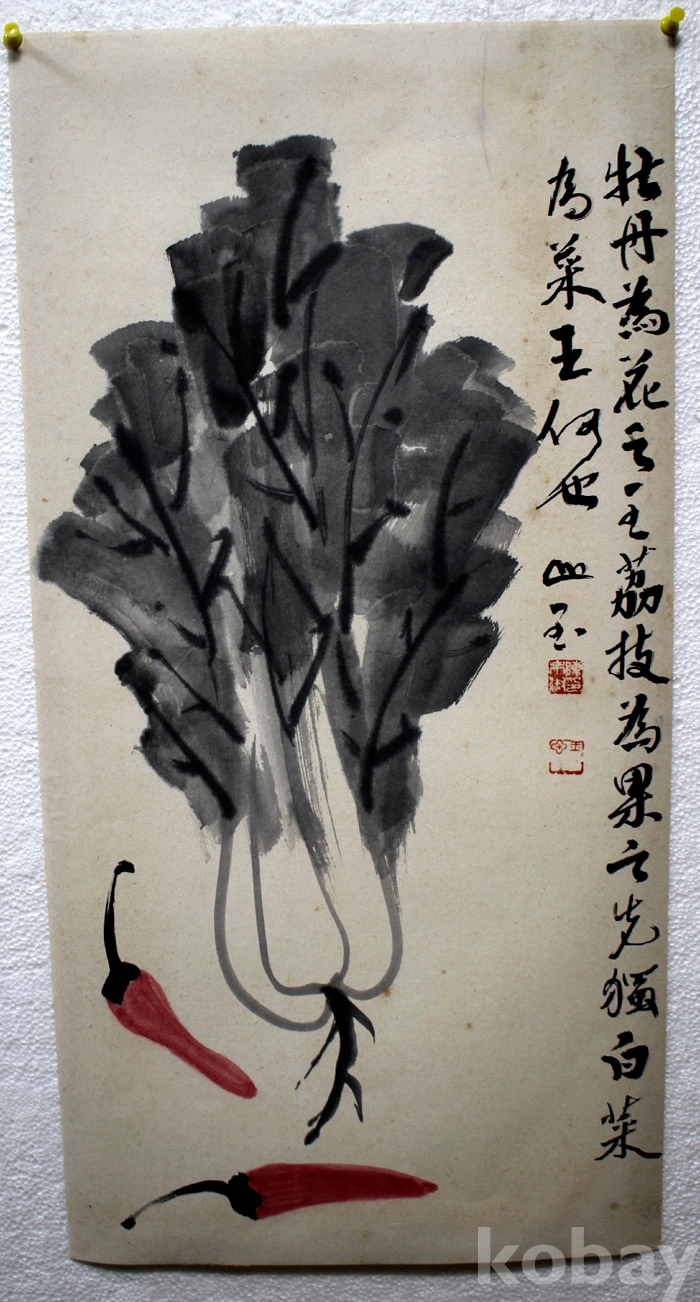 牡丹為花之王荔技為果之先獨白菜
為菜王何也 山玉
kobay